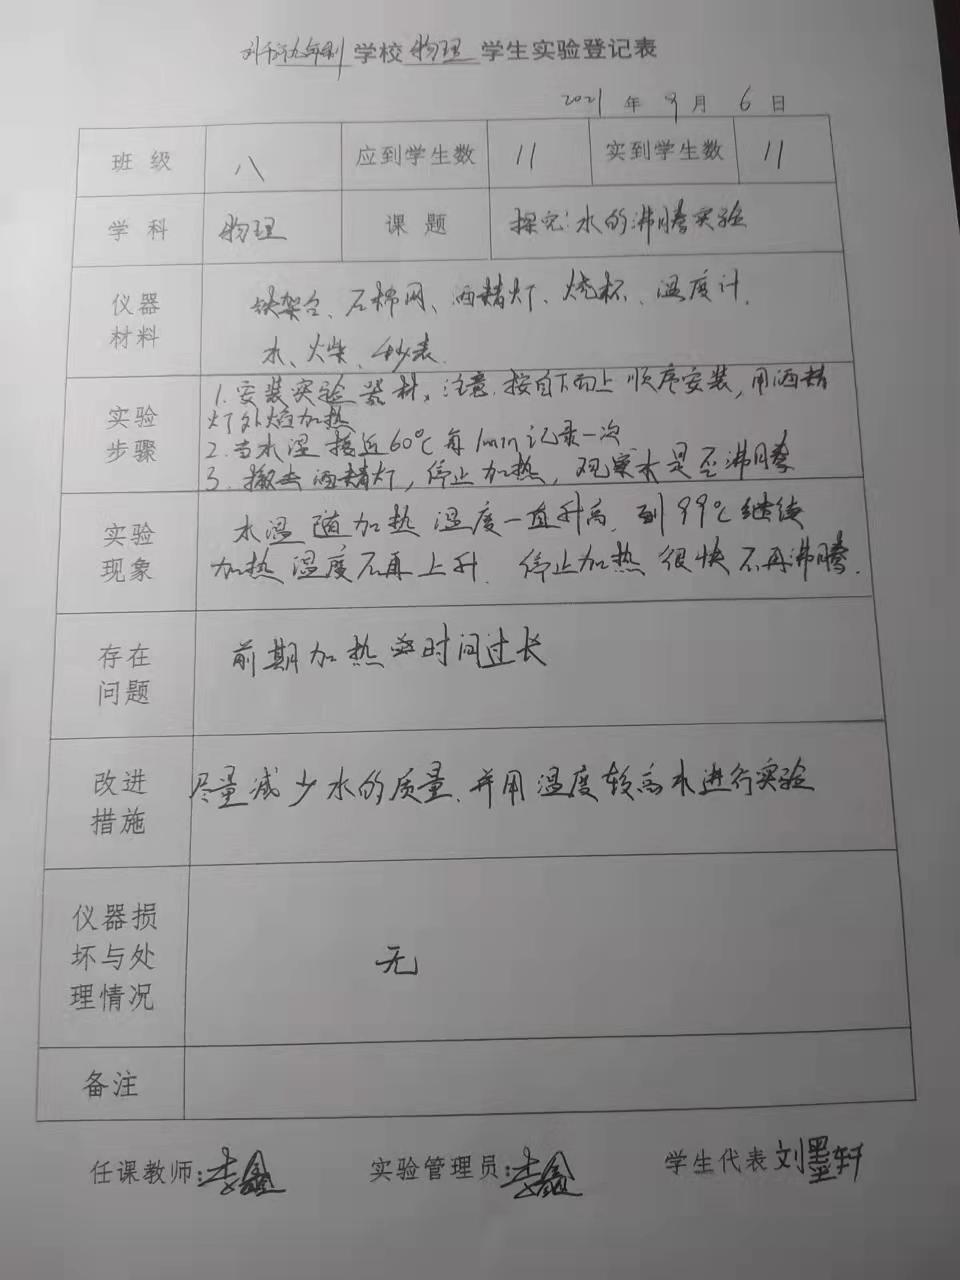 九年制学校物理学生实验登记表
2021年9月6日
班级 八 应到学生数 11 实到学生数 11
学科 物理 课题 探究:水的沸腾实验
仪器材料 铁架台、石棉网、酒精灯、烧杯、温度计、
水、火柴、秒表.
实验步骤 1.安装实验器材。注意.按自下而上顺序安装,用酒精
灯外焰加热
2.当水温接近60℃每1min记录一次
3.撤去酒精灯,停止加热,观察水是否沸腾
实验现象 水温随加热温度一直升高.到99℃继续
加热温度不再上升.停止加热很快不再沸腾.
存在问题 前期加热时间过长
改进措施 尽量减少水的质量.并用温度较高水进行实验
仪器损坏与处理情况 无
备注
任课教师:李鑫 实验管理员:李鑫 学生代表刘墨轩